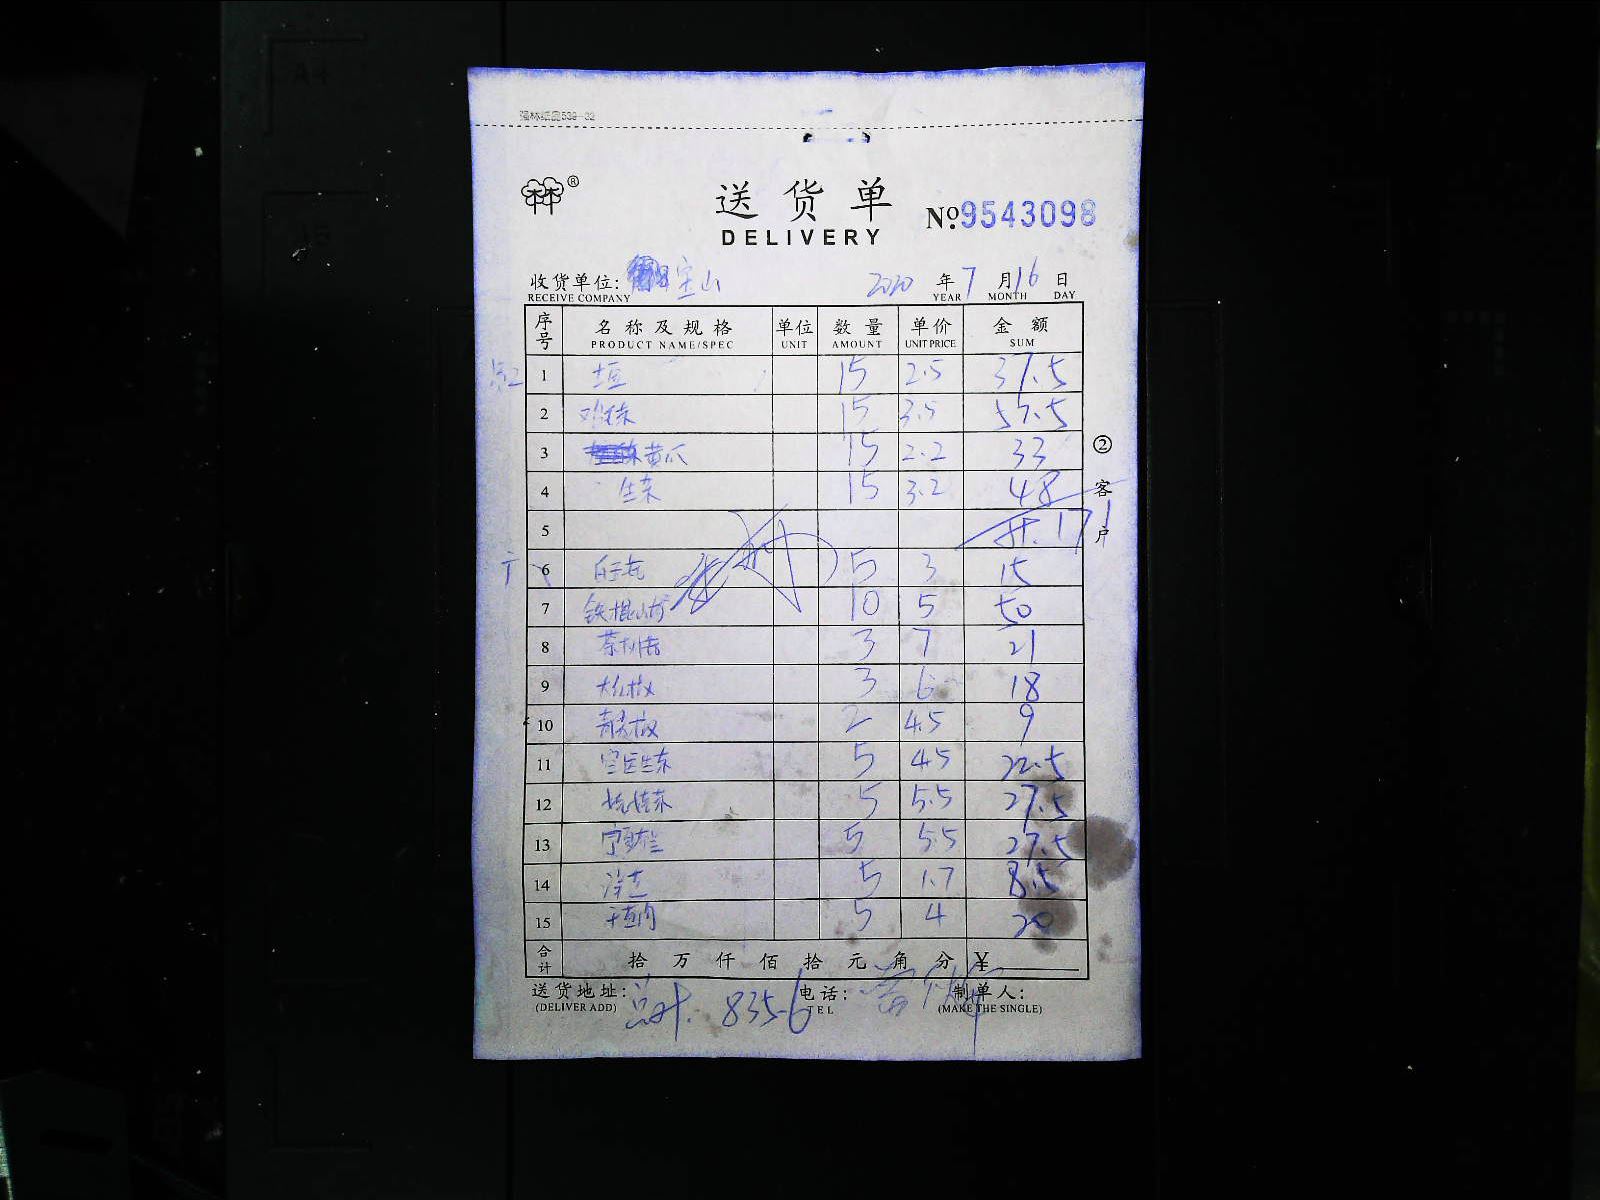 强林纸品539-32
送货单
DELIVERY
№ 9543098
收货单位: 宝山 2020 年 7 月 16 日
RECEIVE COMPANY YEAR MONTH DAY
序号 名称及规格 单位 数量 单价 金额
PRODUCT NAME/SPEC UNIT AMOUNT UNIT PRICE SUM
1 土豆 15 2.5 37.5
2 15 3.5 52.5
3 黄瓜 15 2.2 33
4 生菜 15 3.2 48
5 计: 171
6 5 3 15
7 铁棍山村 10 5 50
8 茶树菇 3 7 21
9 大红椒 3 6 18
10 青尖椒 2 4.5 9
11 5 4.5 22.5
12 5 5.5 27.5
13 5 5.5 27.5
14 5 1.7 8.5
15 5 4 20
② 客户
合计 拾 万 仟 佰 拾 元 角 分 ¥
送货地址: 总计: 835.6 电话: 制单人:
(DELIVER ADD) TEL (MAKE THE SINGLE)